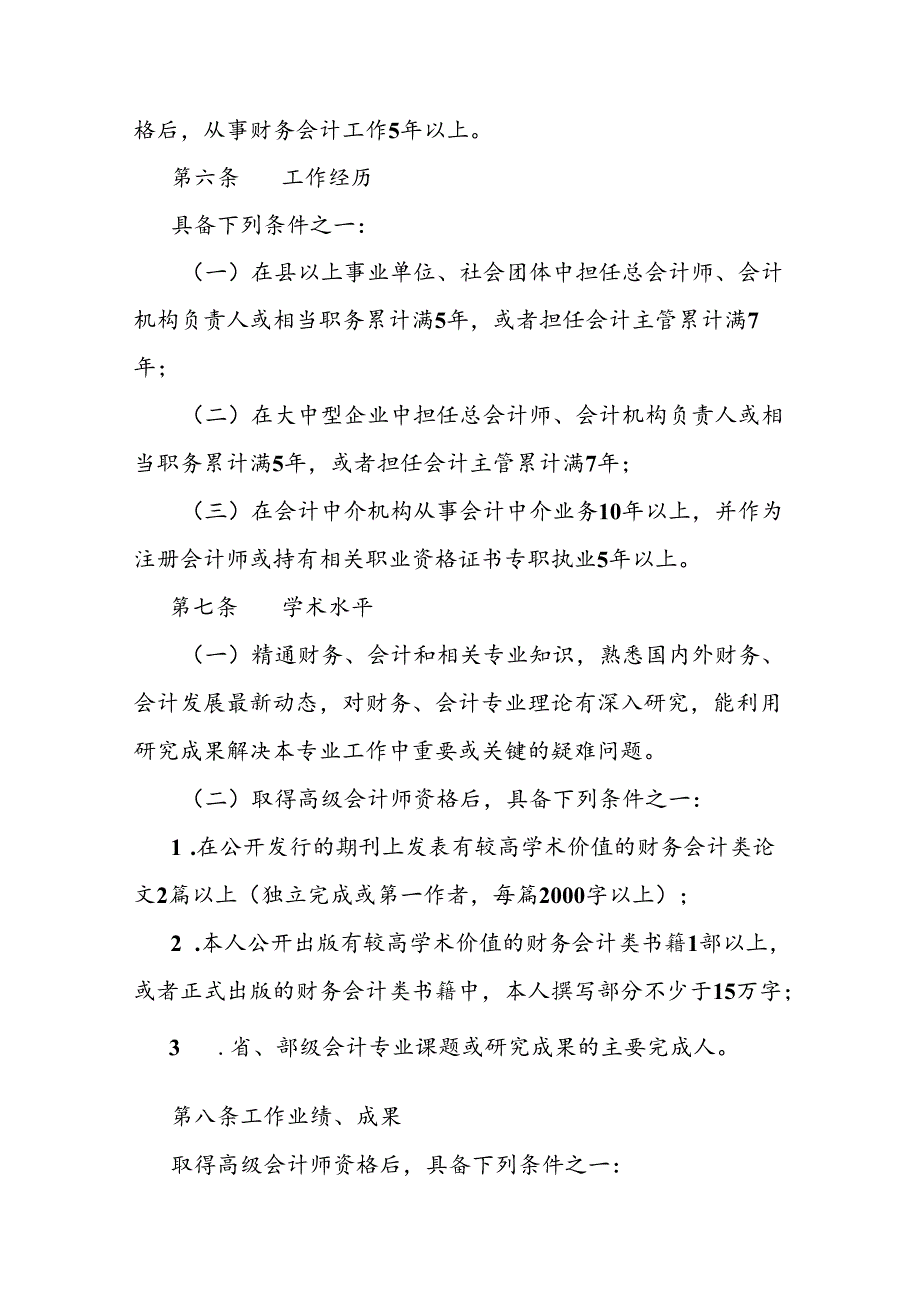 格后，从事财务会计工作5年以上。
第六条 工作经历
具备下列条件之一：
（一）在县以上事业单位、社会团体中担任总会计师、会计
机构负责人或相当职务累计满5年，或者担任会计主管累计满7
年；
（二）在大中型企业中担任总会计师、会计机构负责人或相
当职务累计满5年，或者担任会计主管累计满7年；
（三）在会计中介机构从事会计中介业务10年以上，并作为
注册会计师或持有相关职业资格证书专职执业5年以上。
第七条 学术水平
（一）精通财务、会计和相关专业知识，熟悉国内外财务、
会计发展最新动态，对财务、会计专业理论有深入研究，能利用
研究成果解决本专业工作中重要或关键的疑难问题。
（二）取得高级会计师资格后，具备下列条件之一：
1 .在公开发行的期刊上发表有较高学术价值的财务会计类论
文2篇以上（独立完成或第一作者，每篇2000字以上）；
2 .本人公开出版有较高学术价值的财务会计类书籍1部以上，
或者正式出版的财务会计类书籍中，本人撰写部分不少于15万字；
3 .省、部级会计专业课题或研究成果的主要完成人。
第八条工作业绩、成果
取得高级会计师资格后，具备下列条件之一：